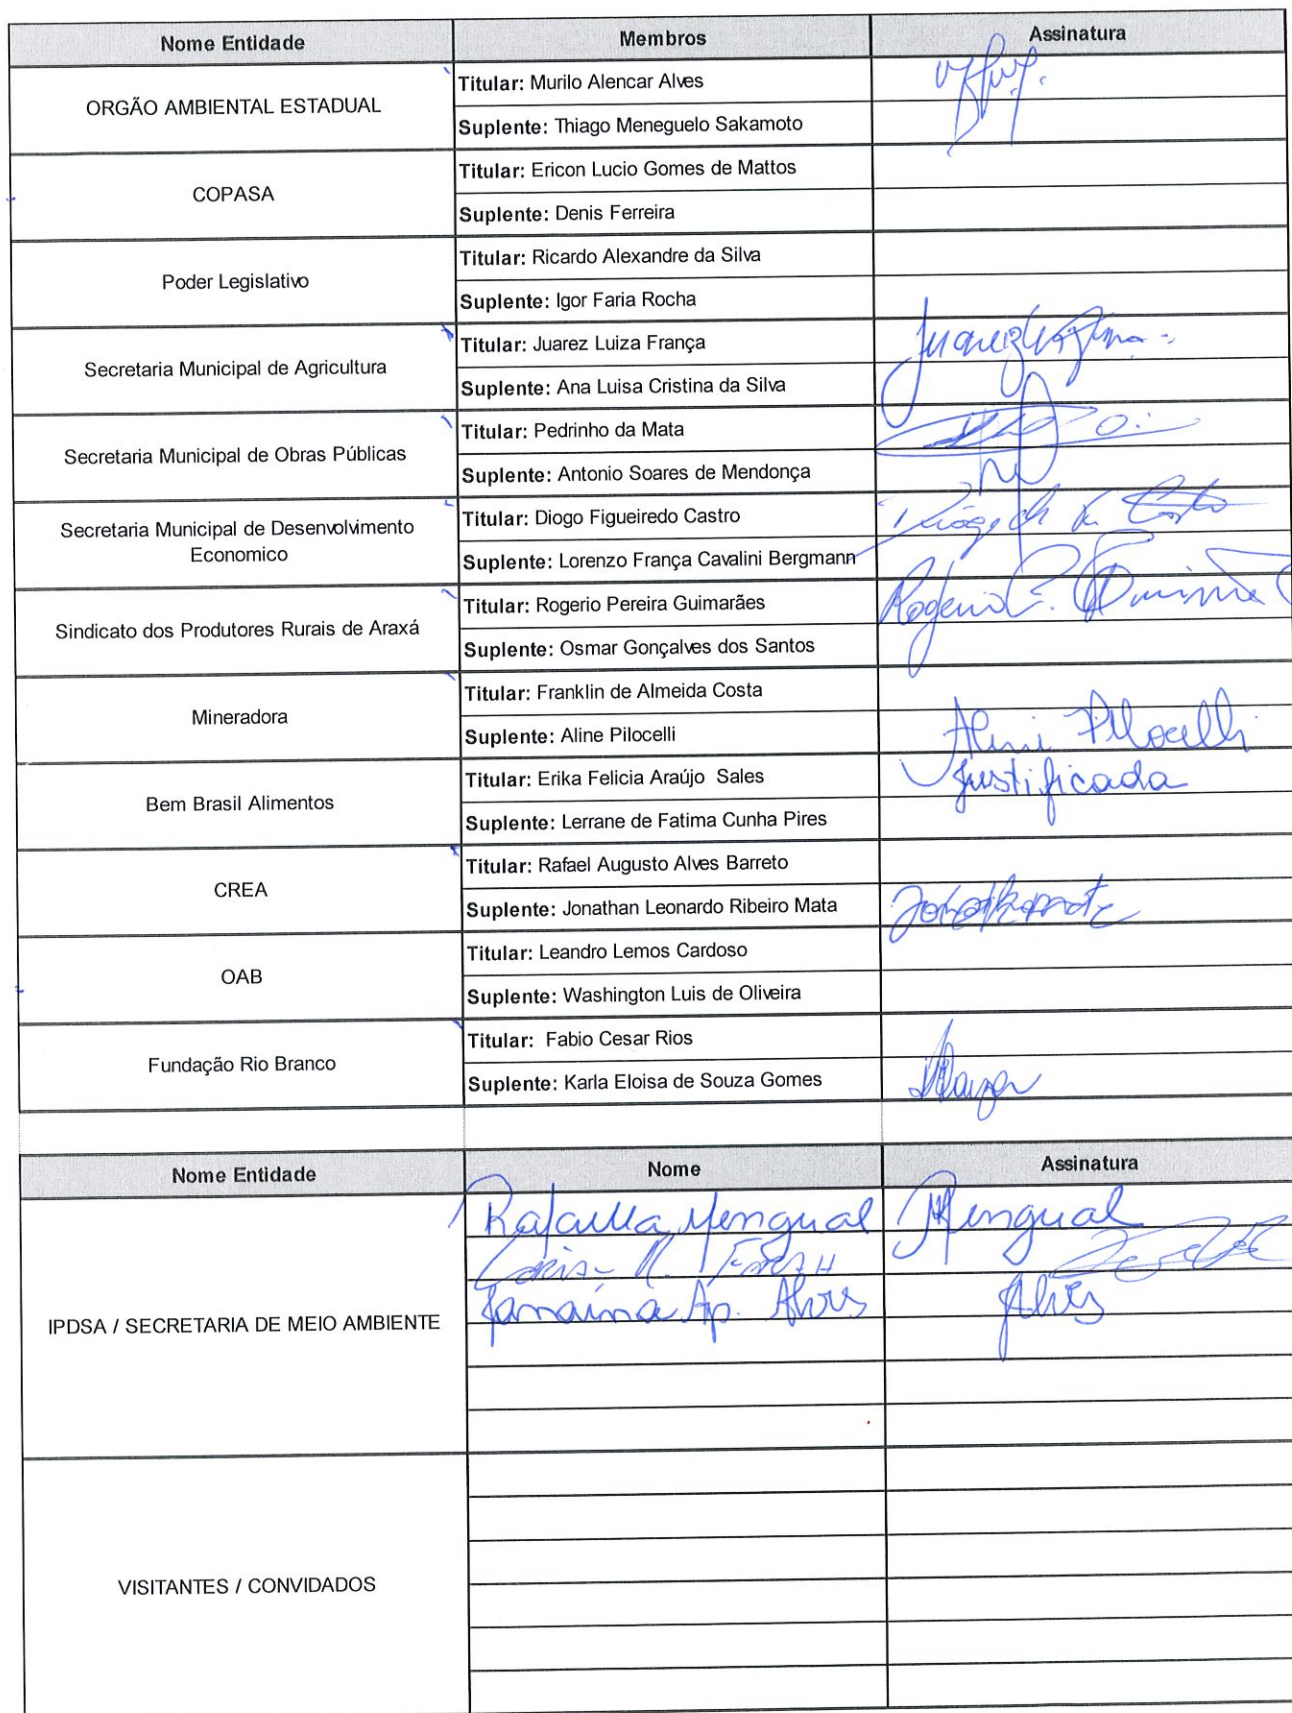 Nome Entidade Membros Assinatura
ORGÃO AMBIENTAL ESTADUAL
Titular: Murilo Alencar Alves
Suplente: Thiago Meneguelo Sakamoto
COPASA
Titular: Ericon Lucio Gomes de Mattos
Suplente: Denis Ferreira
Poder Legislativo
Titular: Ricardo Alexandre da Silva
Suplente: Igor Faria Rocha
Secretaria Municipal de Agricultura
Titular: Juarez Luiza França
Juarez
Suplente: Ana Luisa Cristina da Silva
Secretaria Municipal de Obras Públicas
Titular: Pedrinho da Mata
Suplente: Antonio Soares de Mendonça
Secretaria Municipal de Desenvolvimento
Economico
Titular: Diogo Figueiredo Castro
Suplente: Lorenzo França Cavalini Bergmann
Sindicato dos Produtores Rurais de Araxá
Titular: Rogerio Pereira Guimarães
Rogerio P.
Suplente: Osmar Gonçalves dos Santos
Mineradora
Titular: Franklin de Almeida Costa
Suplente: Aline Pilocelli
Aline Pilocelli
Bem Brasil Alimentos
Titular: Erika Felicia Araújo Sales
Justificada
Suplente: Lerrane de Fatima Cunha Pires
CREA
Titular: Rafael Augusto Alves Barreto
Suplente: Jonathan Leonardo Ribeiro Mata
OAB
Titular: Leandro Lemos Cardoso
Suplente: Washington Luis de Oliveira
Fundação Rio Branco
Titular: Fabio Cesar Rios
Suplente: Karla Eloisa de Souza Gomes
Nome Entidade Nome Assinatura
IPDSA / SECRETARIA DE MEIO AMBIENTE
Rafaella Mengual Mengual
Janaína Ap. Alves Alves
VISITANTES / CONVIDADOS